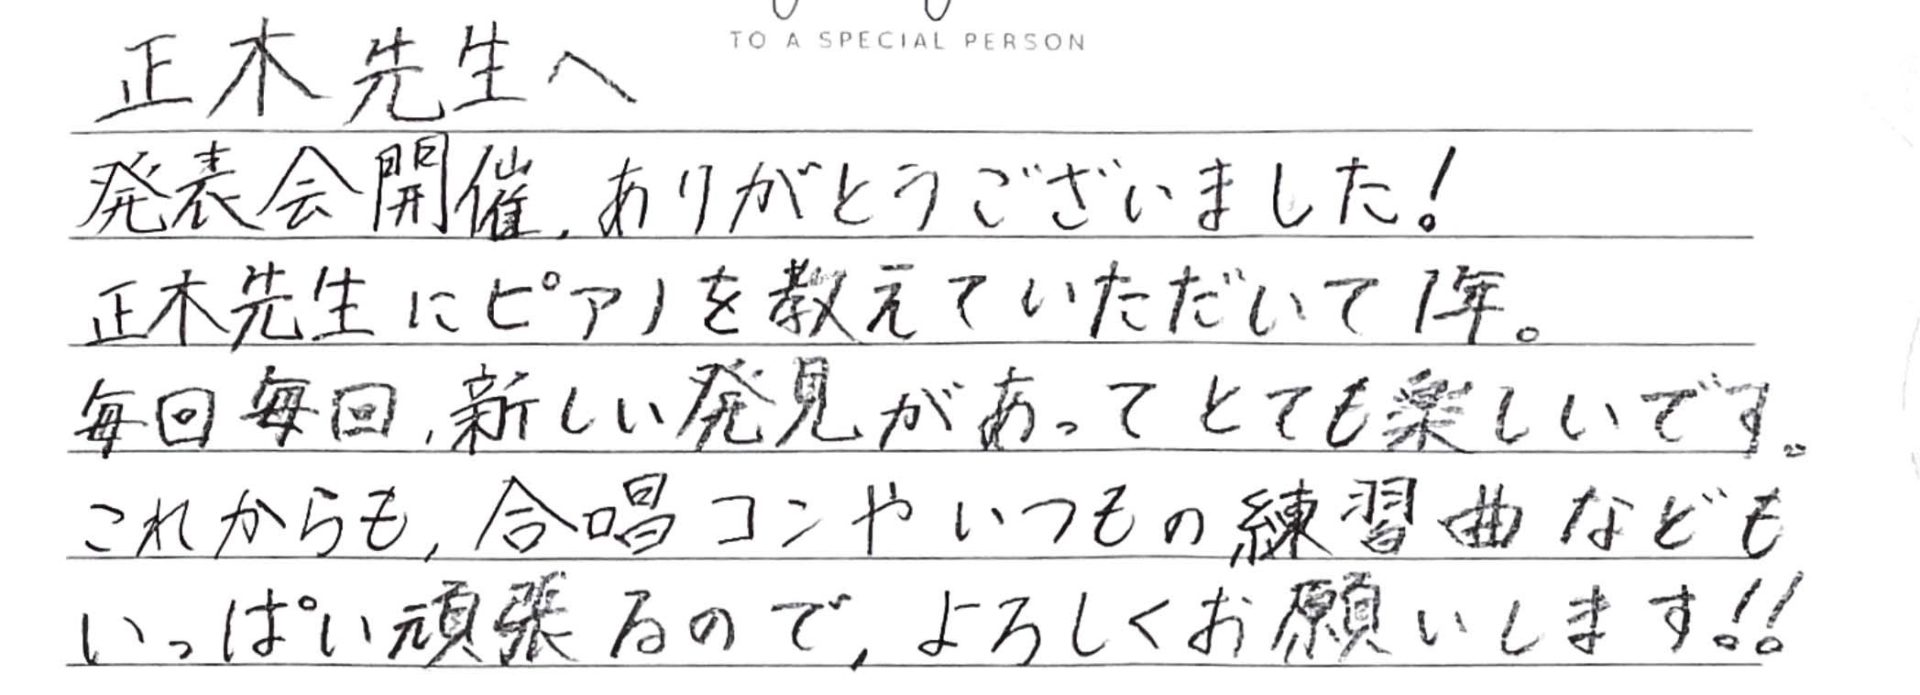 TO A SPECIAL PERSON
正木先生へ
発表会開催、ありがとうございました!
正木先生にピアノを教えていただいて1年。
毎回毎回、新しい発見があってとても楽しいです。
これからも、合唱コンやいつもの練習曲なども
いっぱい頑張るので、よろしくお願いします!!